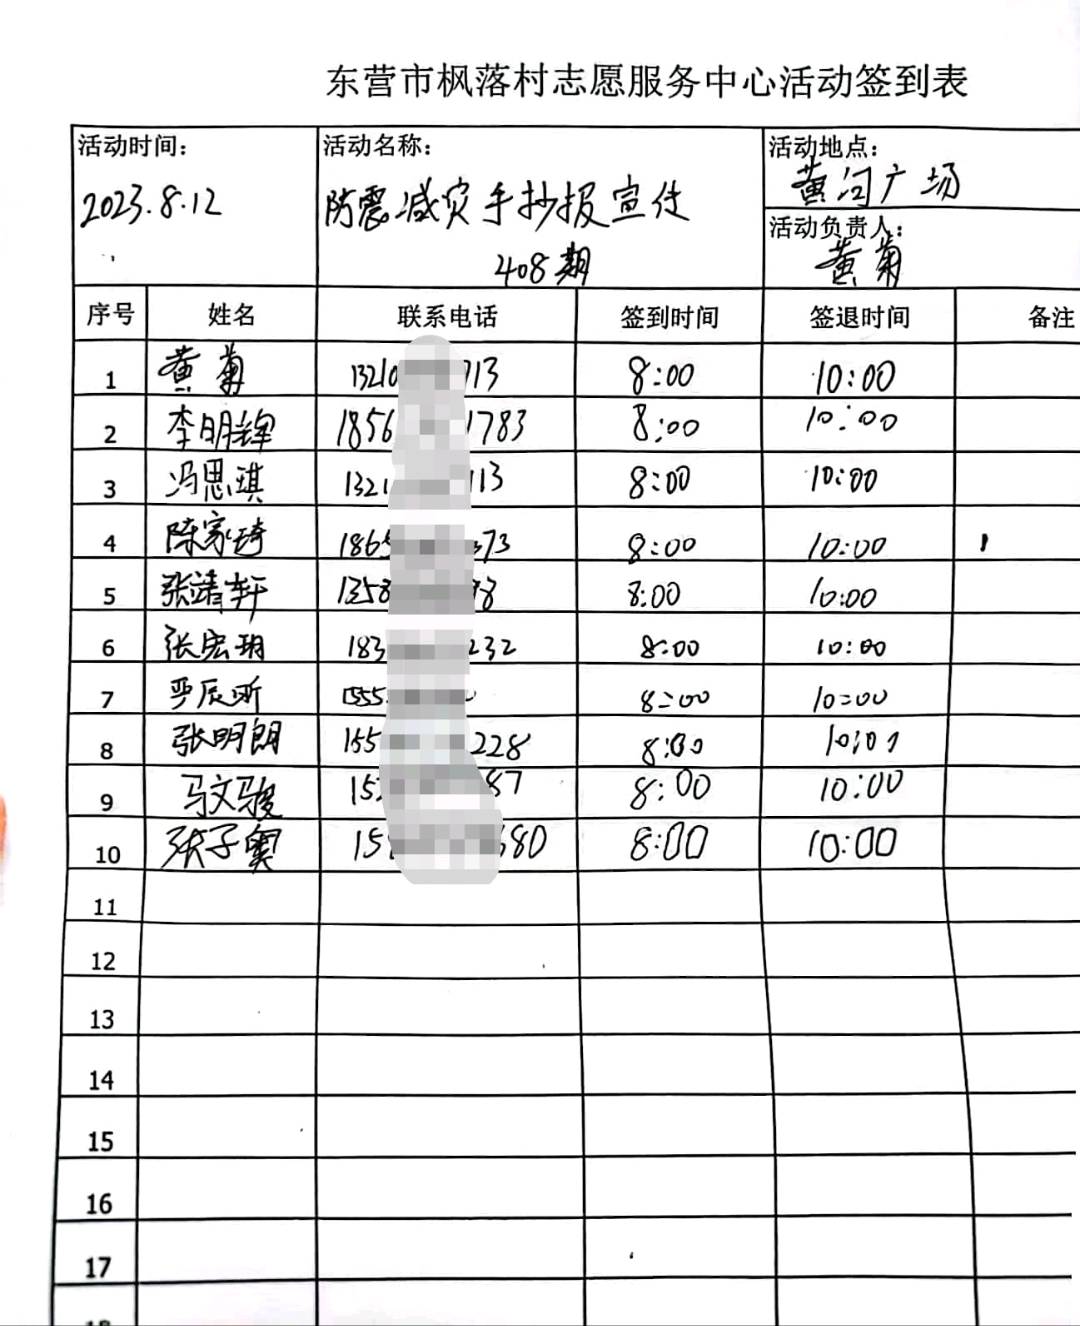 东营市枫落村志愿服务中心活动签到表
活动时间: 活动名称: 活动地点:
2023.8.12 防震减灾手抄报宣传 黄河广场
408期 活动负责人: 黄菊
序号 姓名 联系电话 签到时间 签退时间 备注
1 黄菊 1321 713 8:00 10:00
2 李明辉 1856 1783 8:00 10:00
3 冯思琪 1321 113 8:00 10:00
4 陈家琦 1865 373 8:00 10:00
5 张靖轩 1358 98 8:00 10:00
6 张宏玥 183 232 8:00 10:00
7 1555 8:00 10:00
8 张明朗 155 228 8:00 10:01
9 马文骏 15 87 8:00 10:00
10 张子奥 15 680 8:00 10:00
11
12
13
14
15
16
17
18